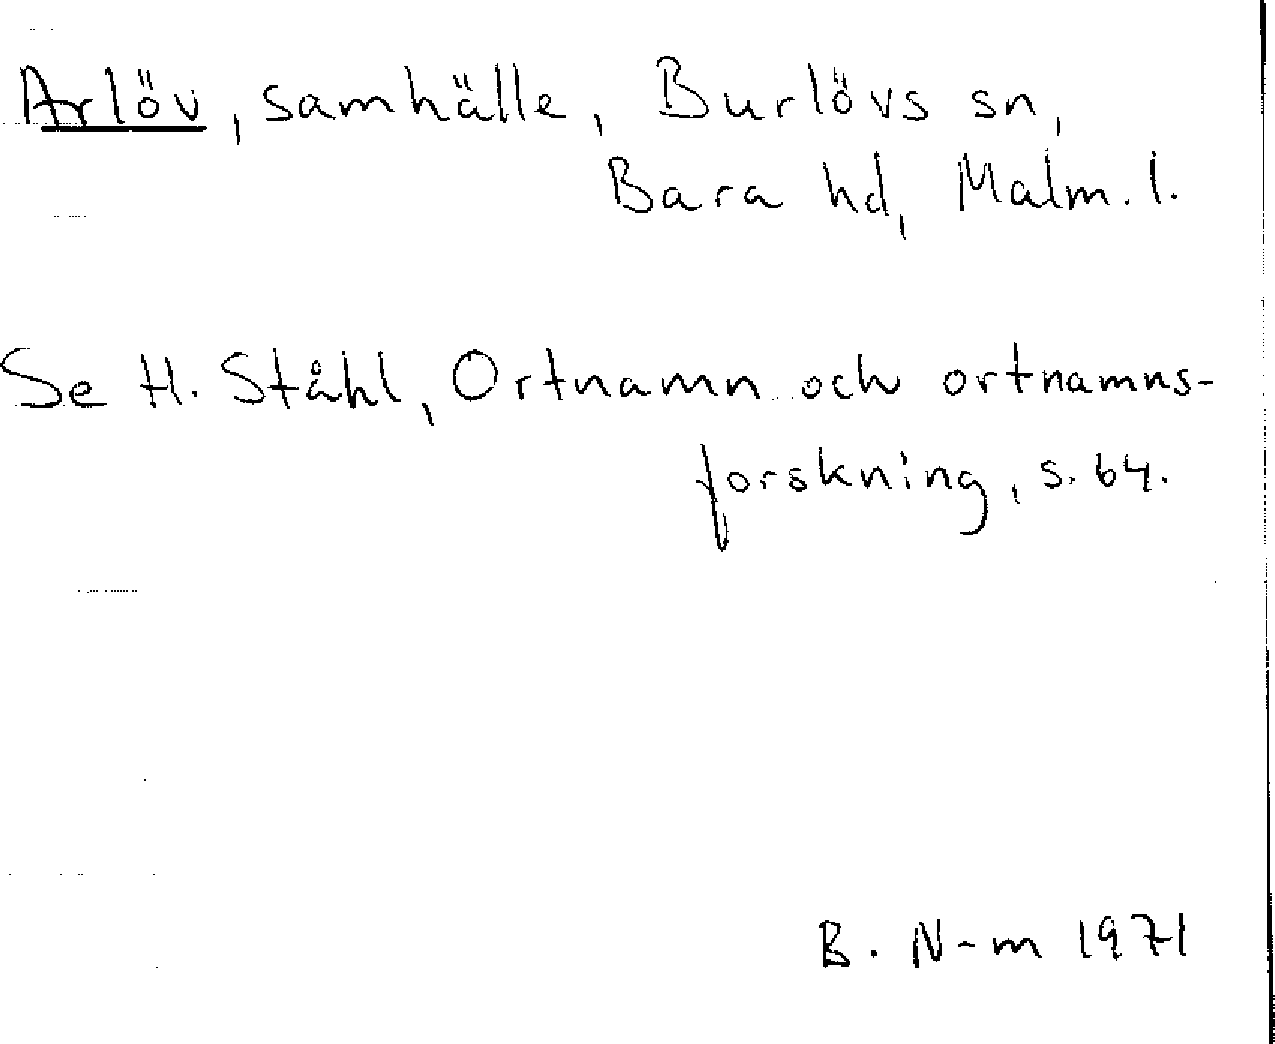 Arlöv, samhälle, Burlövs sn,
Bara hd, Malm. l.
Se H. Ståhl, Ortnamn och ortnamns-
forskning, s. 64.
B. N-m 1971